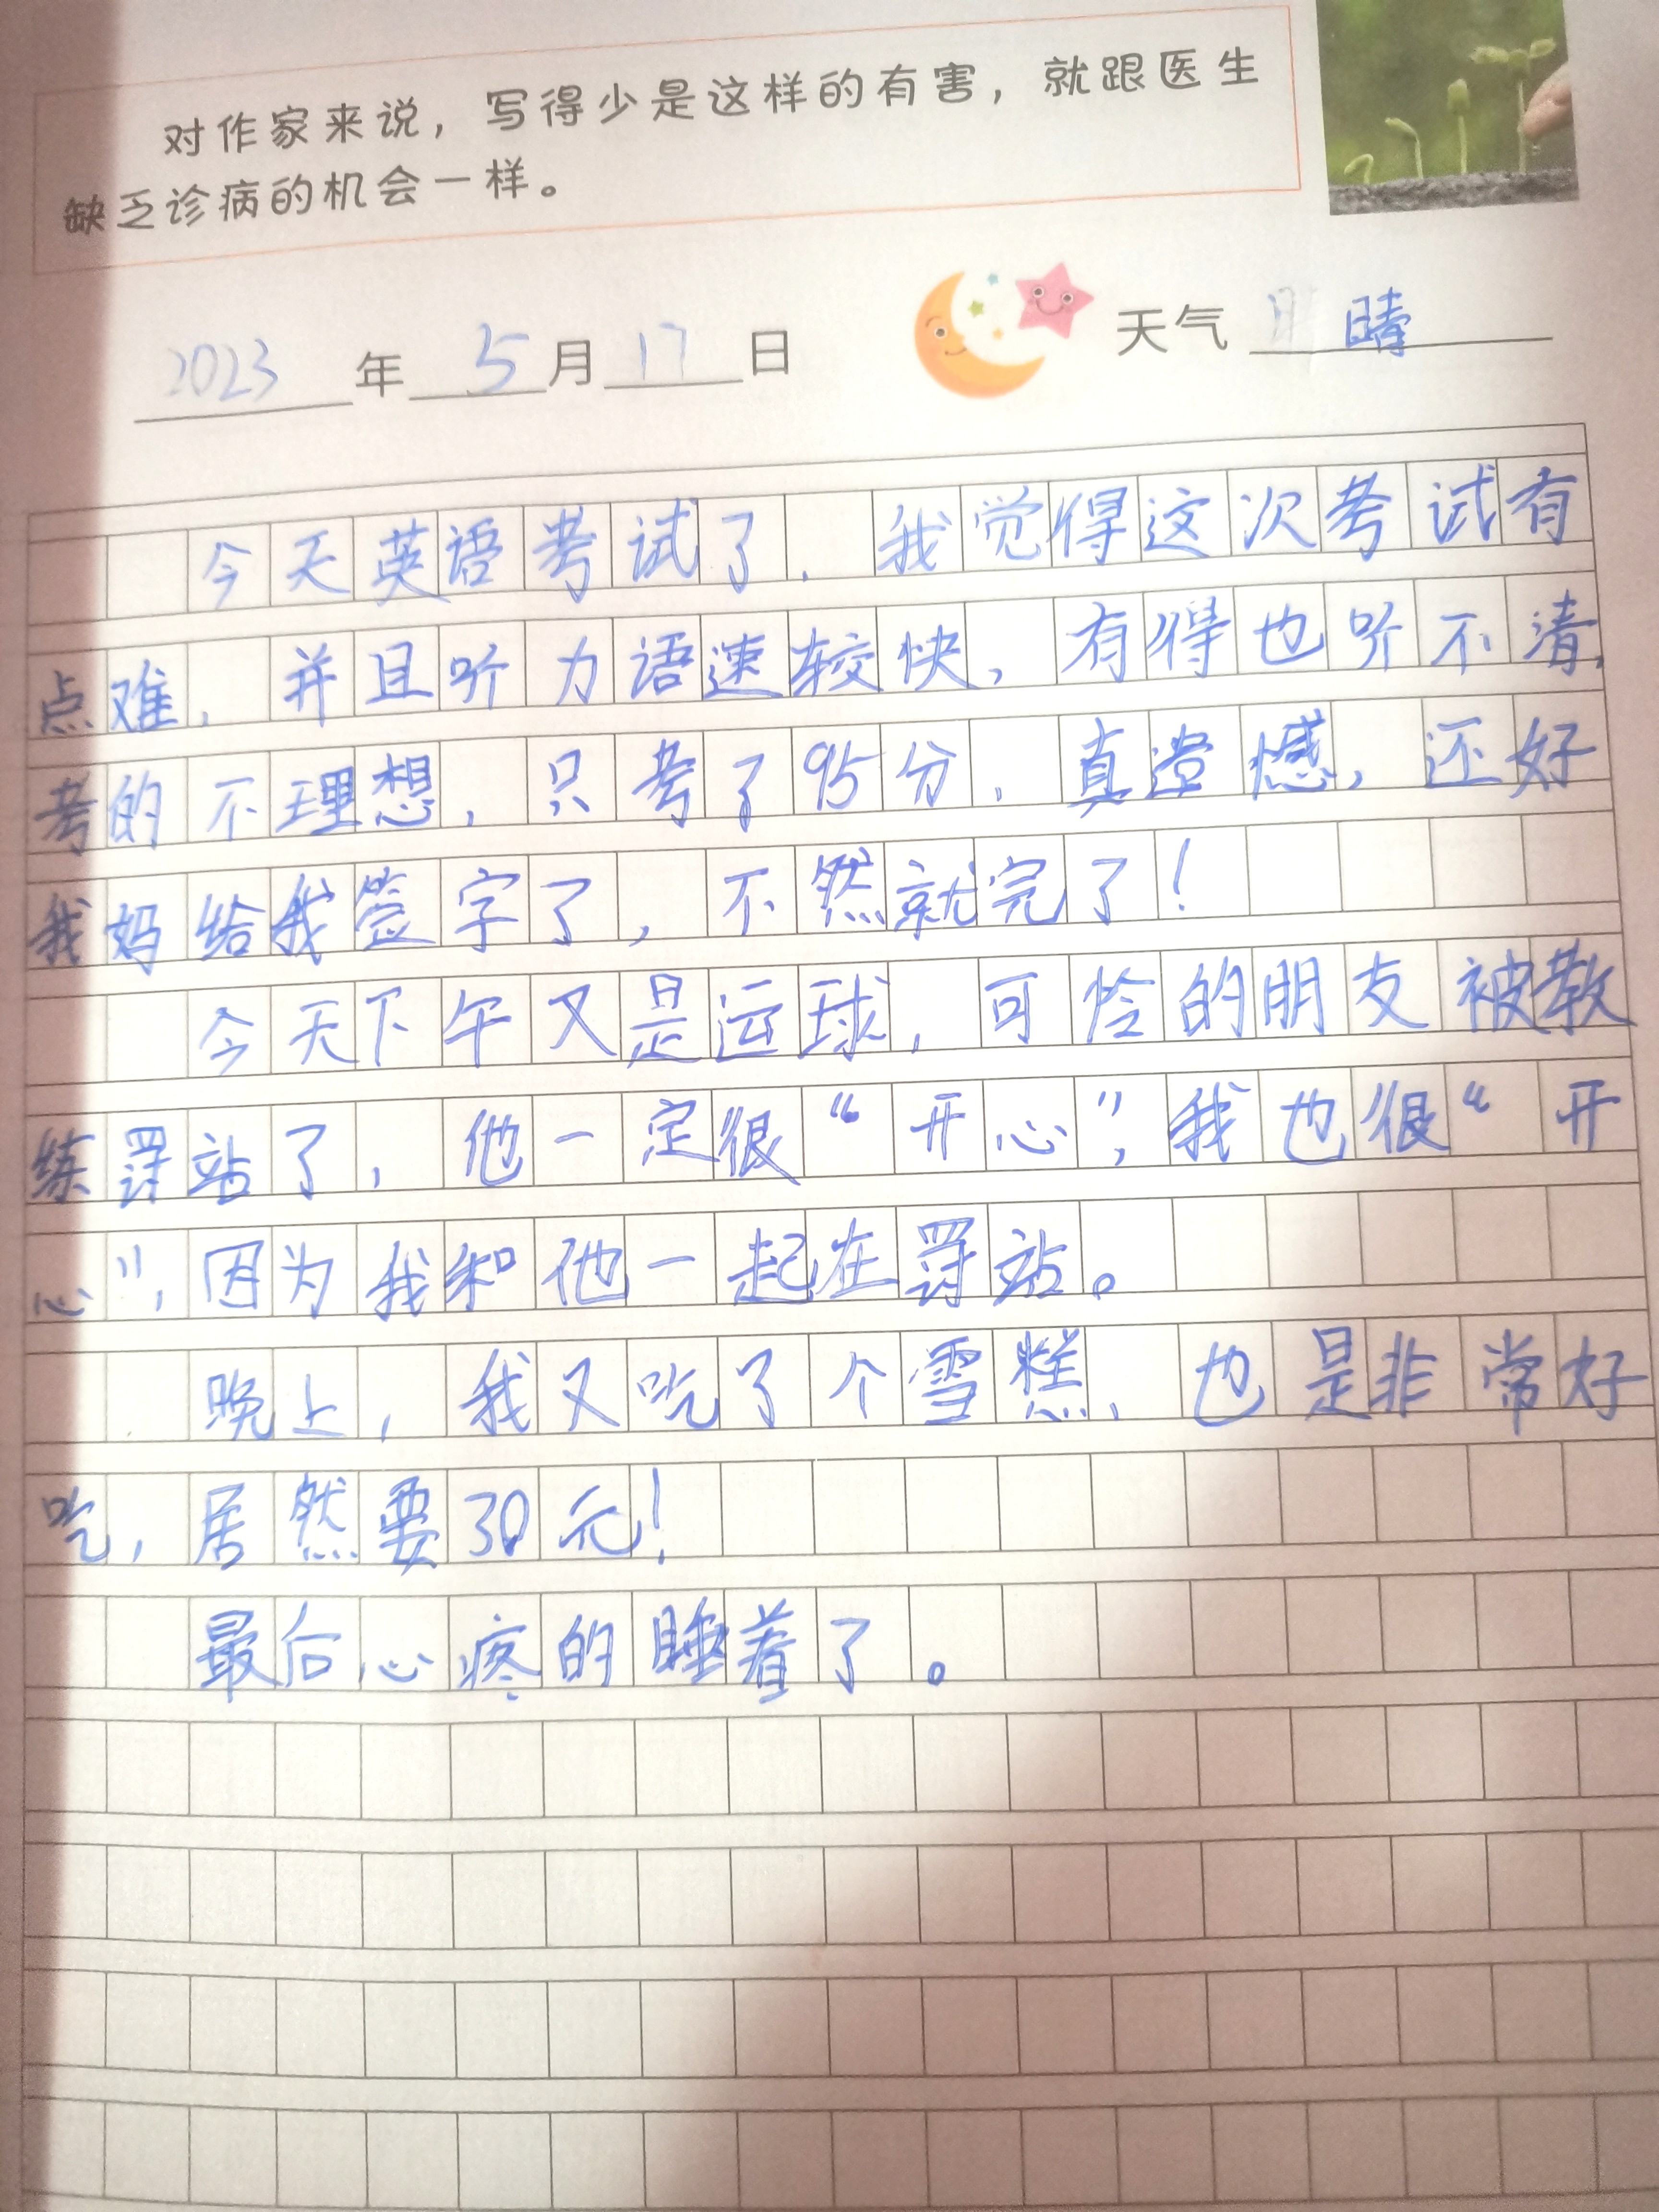 对作家来说，写得少是这样的有害，就跟医生
缺乏诊病的机会一样。
2023年5月17日 天气 晴
今天英语考试了．我觉得这次考试有
点难，并且听力语速较快，有得也听不清，
考的不理想，只考了95分．真遗憾，还好
我妈给我签字了，不然就完了！
今天下午又是运球，可怜的朋友被教
练罚站了，他一定很“开心”，我也很“开
心”，因为我和他一起在罚站。
晚上，我又吃了个雪糕，也是非常好
吃，居然要30元！
最后心疼的睡着了。